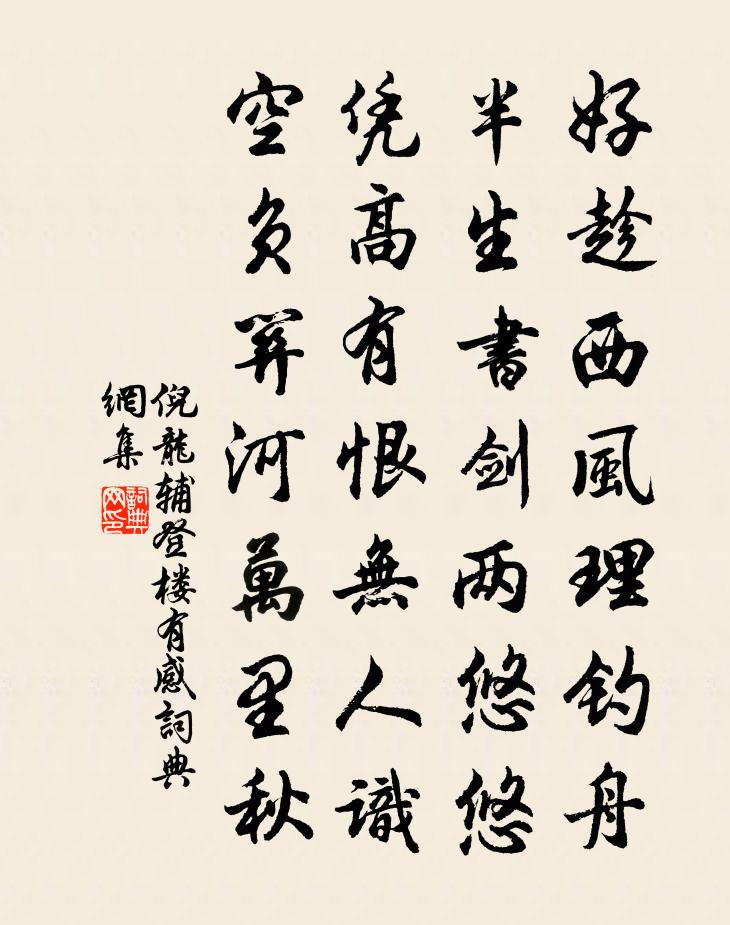 好趁西風理钓舟
半生書剑两悠悠
凭高有恨無人識
空负關河萬里秋
倪龍辅登楼有感詞典
網集
詞典网印